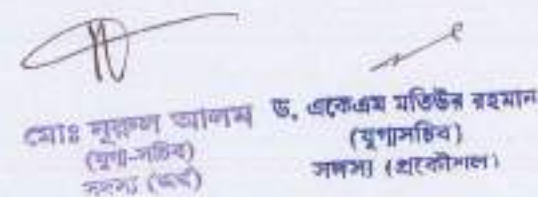 মোঃ নুরুল আলম
(যুগ্ম-সচিব)
সদস্য (অর্থ)
ড. একেএম মতিউর রহমান
(যুগ্মসচিব)
সদস্য (প্রকৌশল)